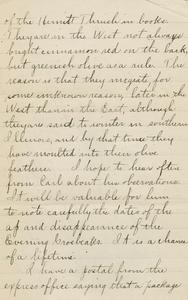 of the Hermit Thrush in books.
They are in the West not always
bright cinnamon red on the back
but greenish olive as a rule. The
reason is that they migrate, for
some unknown reason, later in the
West than in the East, although
they are said to winter in southern
Illinois, and by that time they
have moulted into their olive
feathers. I hope to hear often
from Carl about his observations.
It will be valuable for him
to note carefully the dates of the
ap and disappearance of the
Evening Grosbeaks. It is a chance
of a lifetime.
I have a postal from the
express office saying that a package